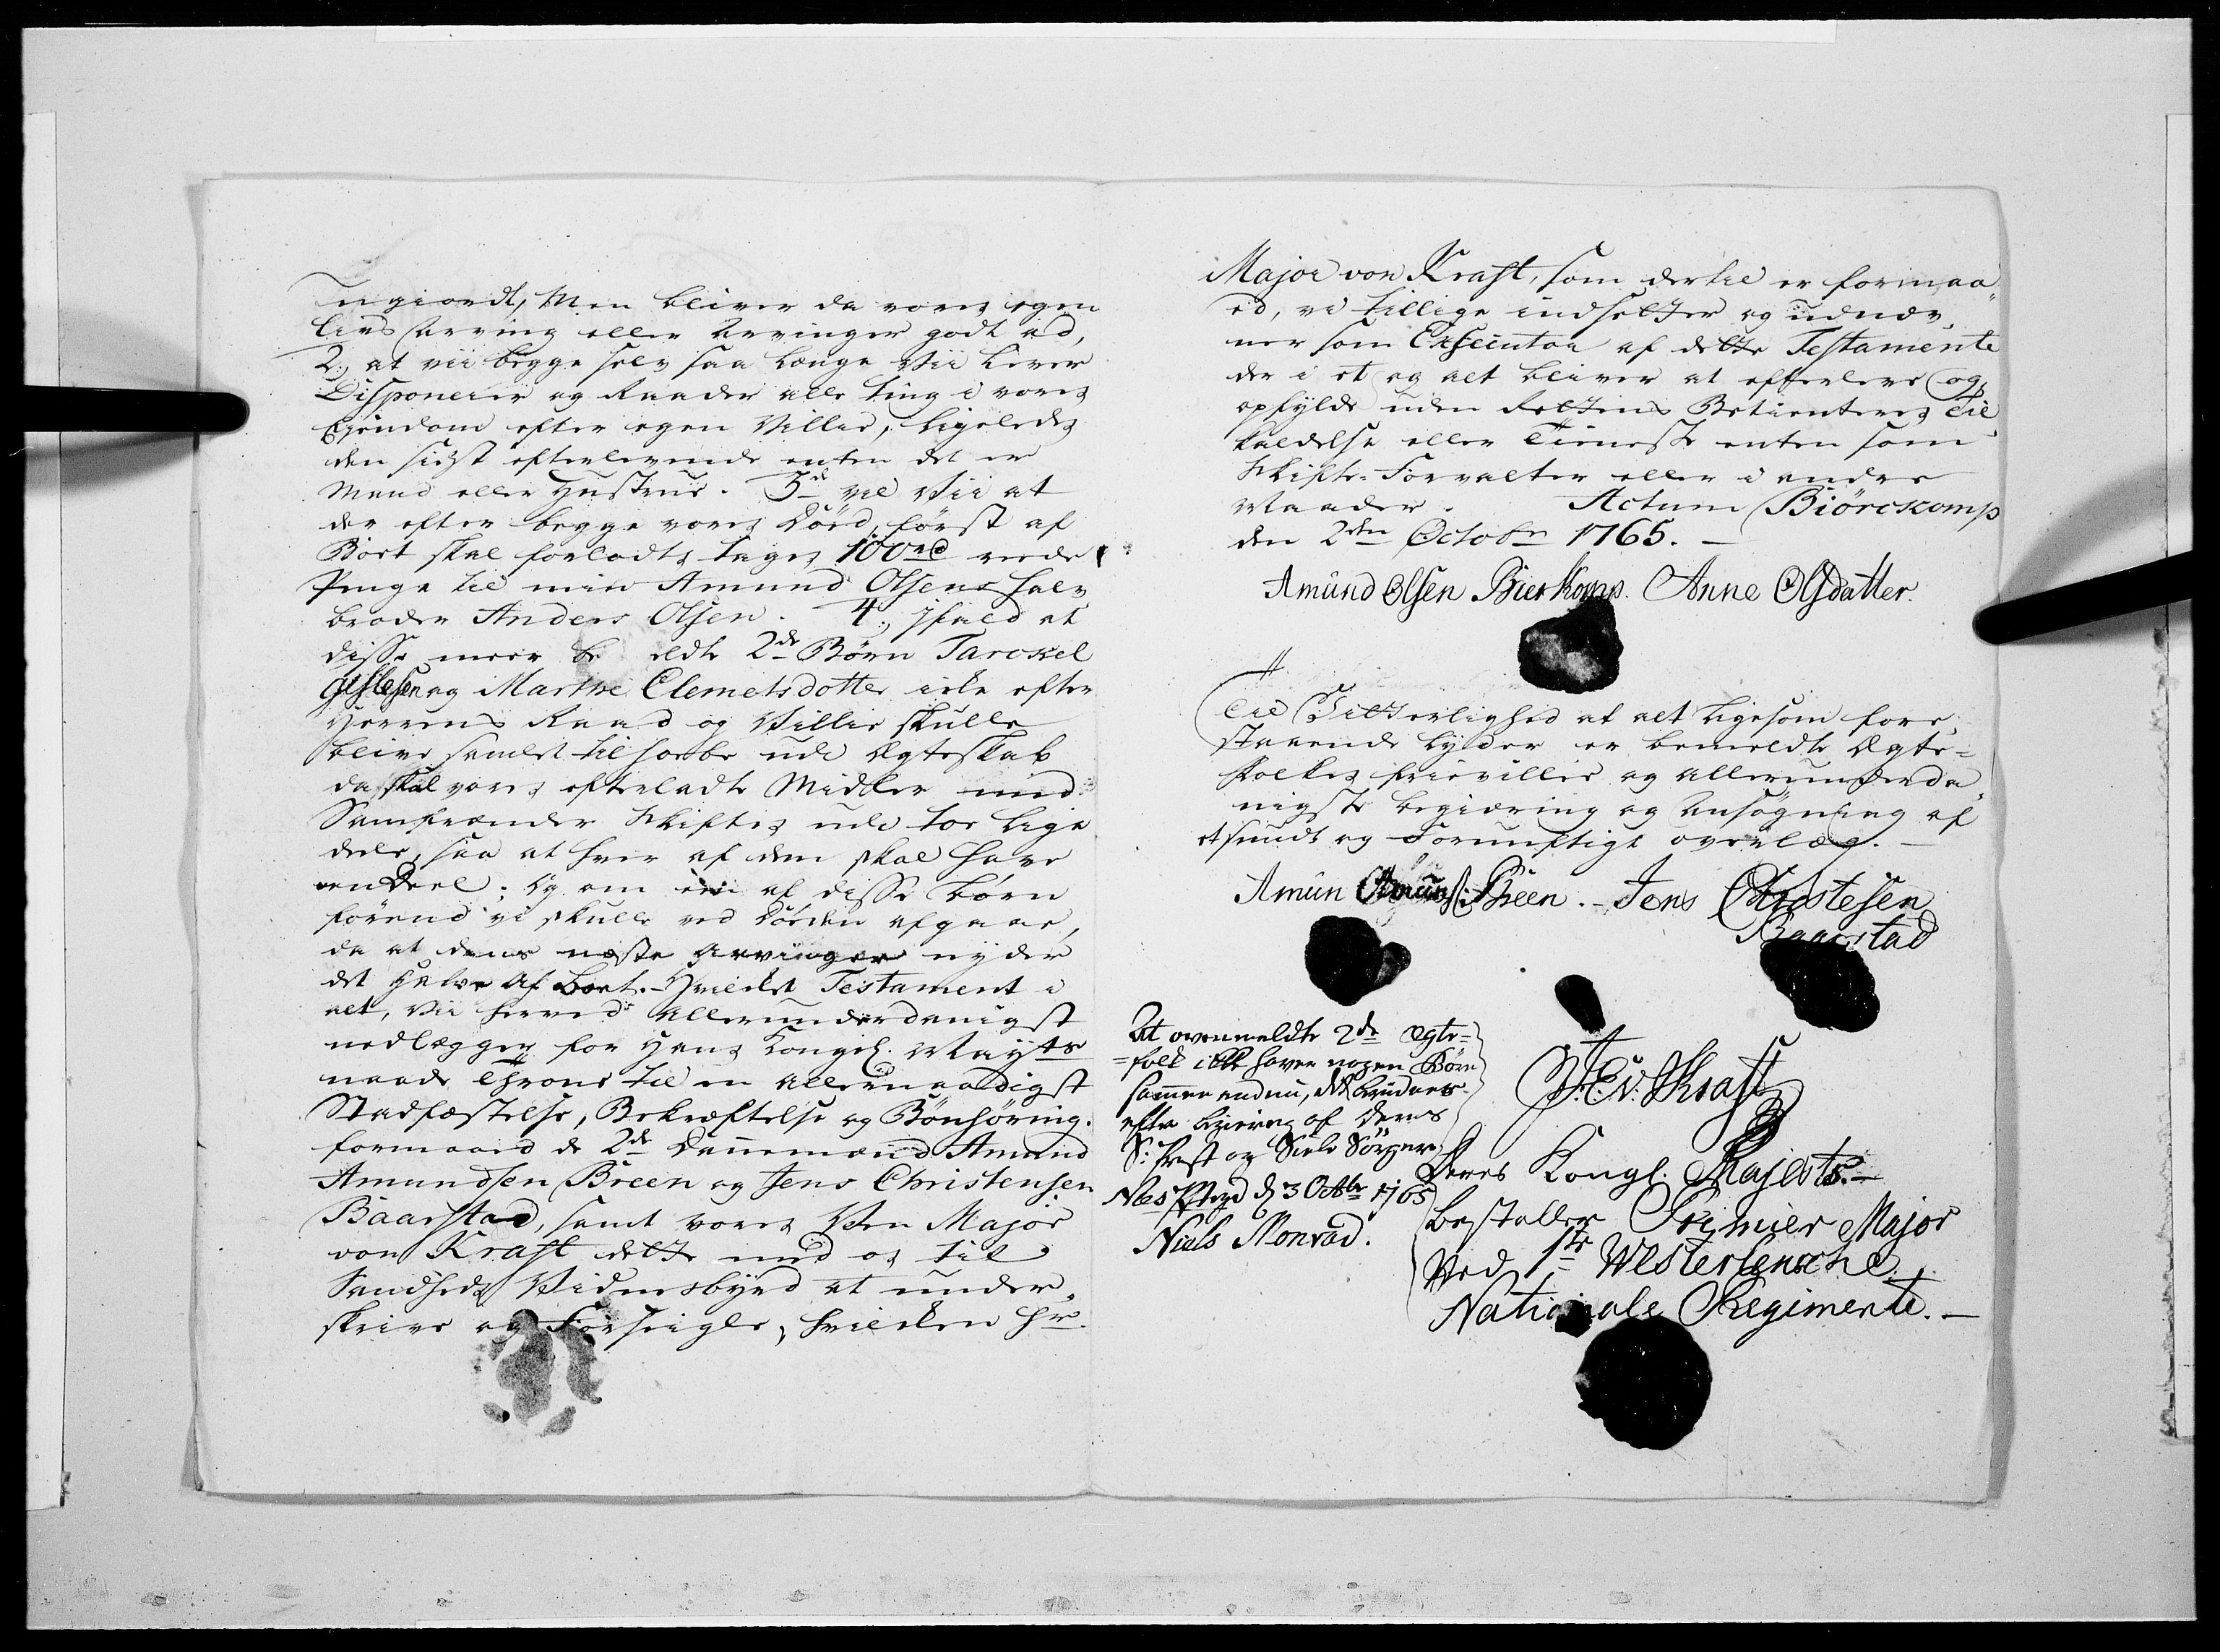 ugiordt, Men bliver da vores egen
livs Arving eller Arvinger godt ad,
2:, at vii begge selv saa længe Vii Lever
Disponerer og Raader alle ting i vores
Eijendom efter egen Villie, ligeledes
den sidst efterlevende enten det er
Mand eller Hustrue. 3de vil Vii at
der efter begge vores Död, först af
Boet skal forlodts tages 100rd rede
Penge til min Amund Olsens halv
broder Anders Olsen. 4:, ifald at
disse meer be eldte 2de Börn Tarokel
Gislesen og Marthe Clemetsdotter icke efter
Herrens Raad og Villie skulle
blive samlet tilsammen udi Ægteskab
da skal vores efterladte Midler imid
Samfrænder Skiftes udi toe lige
deele, saa at hver af dem skal have
en Deel; Og om een af disse börn
förend vi skulle ved Döden afgaae,
da at dens næste arvinger nyder
det halve af boet. Hvilket Testament i
alt, Vii herved allerunderdanigst
nedlægger for Hans Kongel. Mayts
naade throne til en allernaadigst
Stadfæstelse, Bekræftelse og Bönhöring.
formaaed de 2de Dannemænd Amund
Amundsen Breen og Jens Christensen
Baarstad, samt vores Ven Major
von Kraft dette med os til
Sandheds Vidnesbyrd at under-
skrive og Forseigle, hvilcken Hr.
Major von Kraft, som dertil er formaa-
ed, vi tillige indsetter og udnæv-
ner som Executor af dette Testamente
der i et og alt bliver at efterleve og
opfylde uden Rettens Betienteres Til-
kaldelse eller Tieneste enten som
Skifte-Forvalter eller i andre
Maader. Actum Biörckomp
den 2den Octobr 1765. —
Amund Olsen Bierkomp. Anne Olsdatter.
Til Vitterlighed at alt ligesom fore-
staaende lyder er bemeldte Ægte=
folkes frievillie og allerunderda-
nigste begiæring og Ansögning af
et sundt og Fornuftigt overlæg. —
Amun Amuns: Breen. - Jens Christesen
Baarstad
At ovenmeldte 2de Ægte=
=folk icke haver nogen Börn
sammen endnu, det bevidnes
efter begiæring af deres
S: Prest og Siele Sörger
Næs Prgd d 3 Octbr 1765
Niels Monrad.
J: C: v: Kraft
Deres Kongl. Majests. —
bestalter Premier Major
Ved 1ste Westerlensche
Nationale Regimente. —